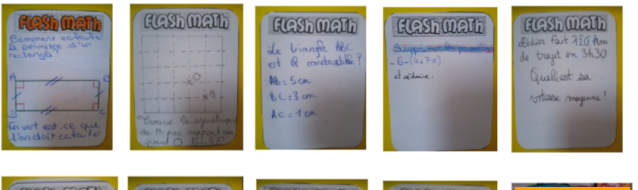 FLASH MATH
Comment calculer
le périmètre d'un
rectangle?
A
B
En vert est ce que
l'on doit calculer
FLASH MATH
O
B
Trace le symétrique
de B par rapport
FLASH MATH
Le triangle ABC
est il constructible?
AB = 5 cm
BC = 3 cm
AC = 1 cm
FLASH MATH
Supprimer les
-6-(4+7x)
et réduire.
FLASH MATH
fait 126 km
de trajet en 3h30
Quelle est sa
vitesse moyenne?